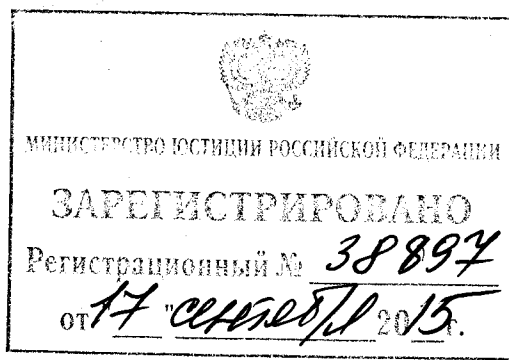 МИНИСТЕРСТВО ЮСТИЦИИ РОССИЙСКОЙ ФЕДЕРАЦИИ
ЗАРЕГИСТРИРОВАНО
Регистрационный № 38897
от 17 " сентября 2015г.